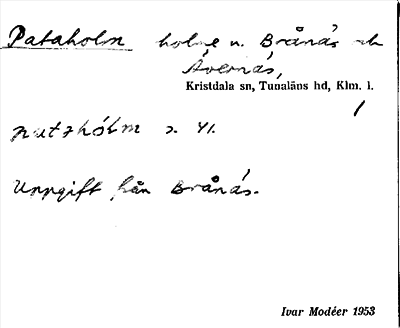 Pataholm holme n. Brånäs och
Ävernäs,
Kristdala sn, Tunaläns hd, Klm. l.
1
s. 41.
Uppgift från Brånäs.
Ivar Modéer 1953